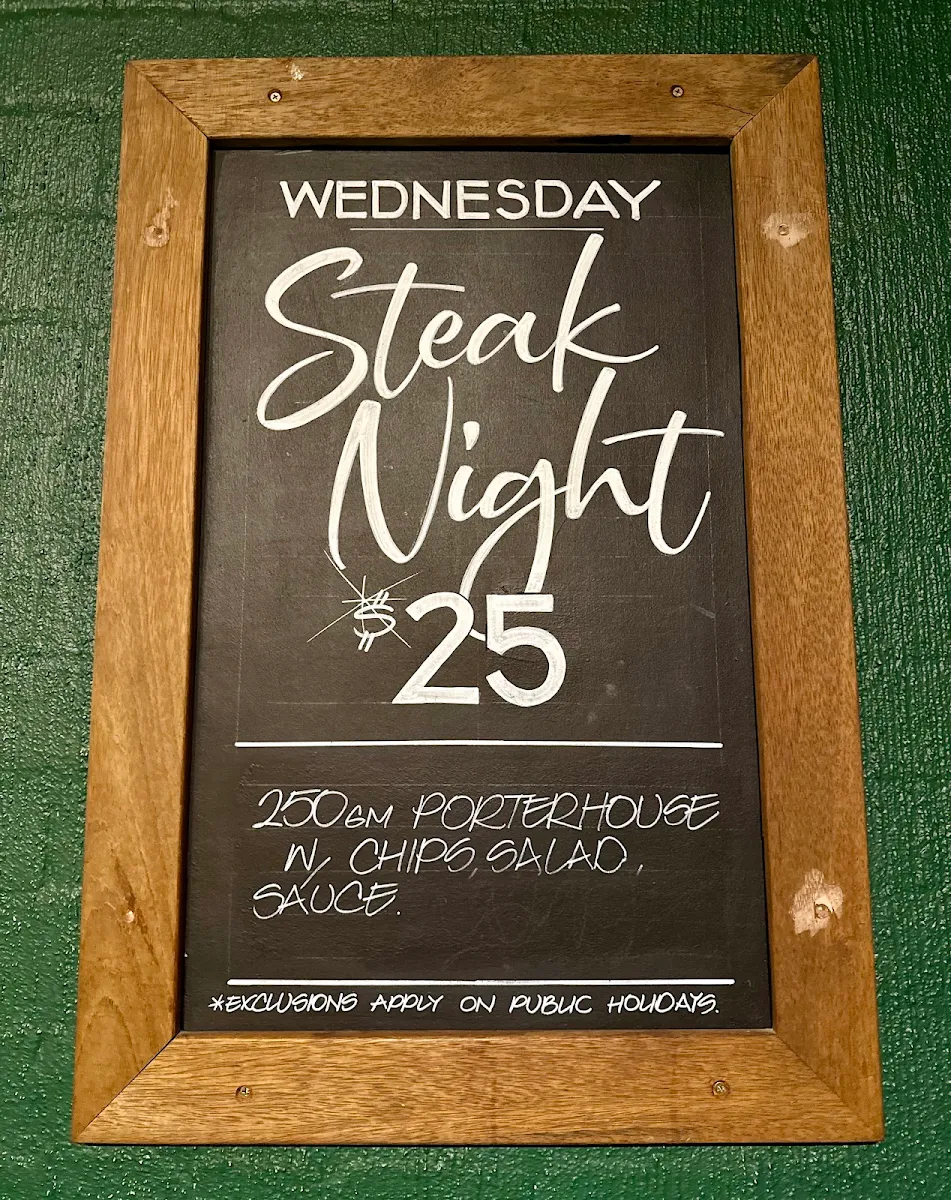 WEDNESDAY
Steak
Night
$25
250GM PORTERHOUSE
W/ CHIPS, SALAD,
SAUCE.
*EXCLUSIONS APPLY ON PUBLIC HOLIDAYS.